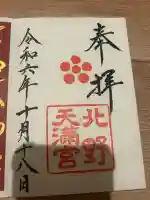 奉拝
北野
天満宮
令和六年十月十八日